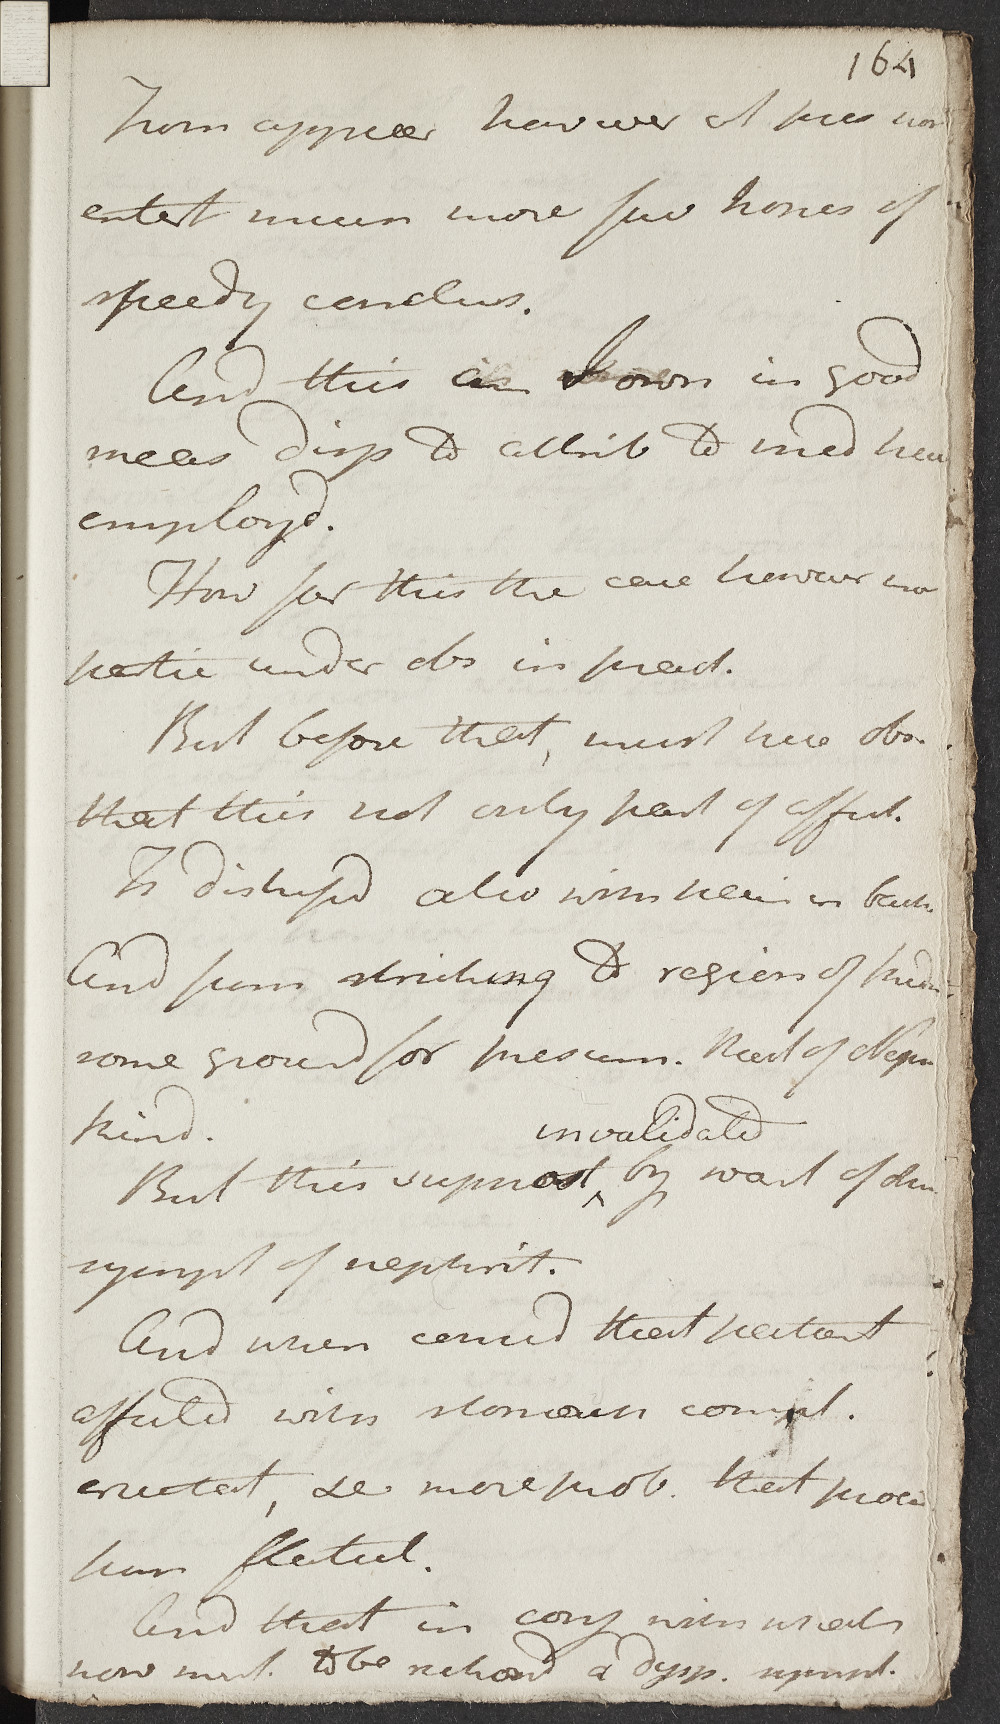 164
From appear however at pres
entert much more few hopes of
speedy conclus.
And this in good
meas disp to attrib to med
employd.
How far this the case however
under obs in pract.
But before that, must here obs.
that this not only part of affect.
Is distressd also with pain in back
And from striking to region of kidn
some ground for presum. that of Neph
kind.
invalidated
But this by want of
sympt of nephrit.
And when consid that patient
affected with stomach compl.
eructat, &c more prob. that proceed
from flatul.
And that in conj with what
now ment. to be reckond a dysp. sympt.